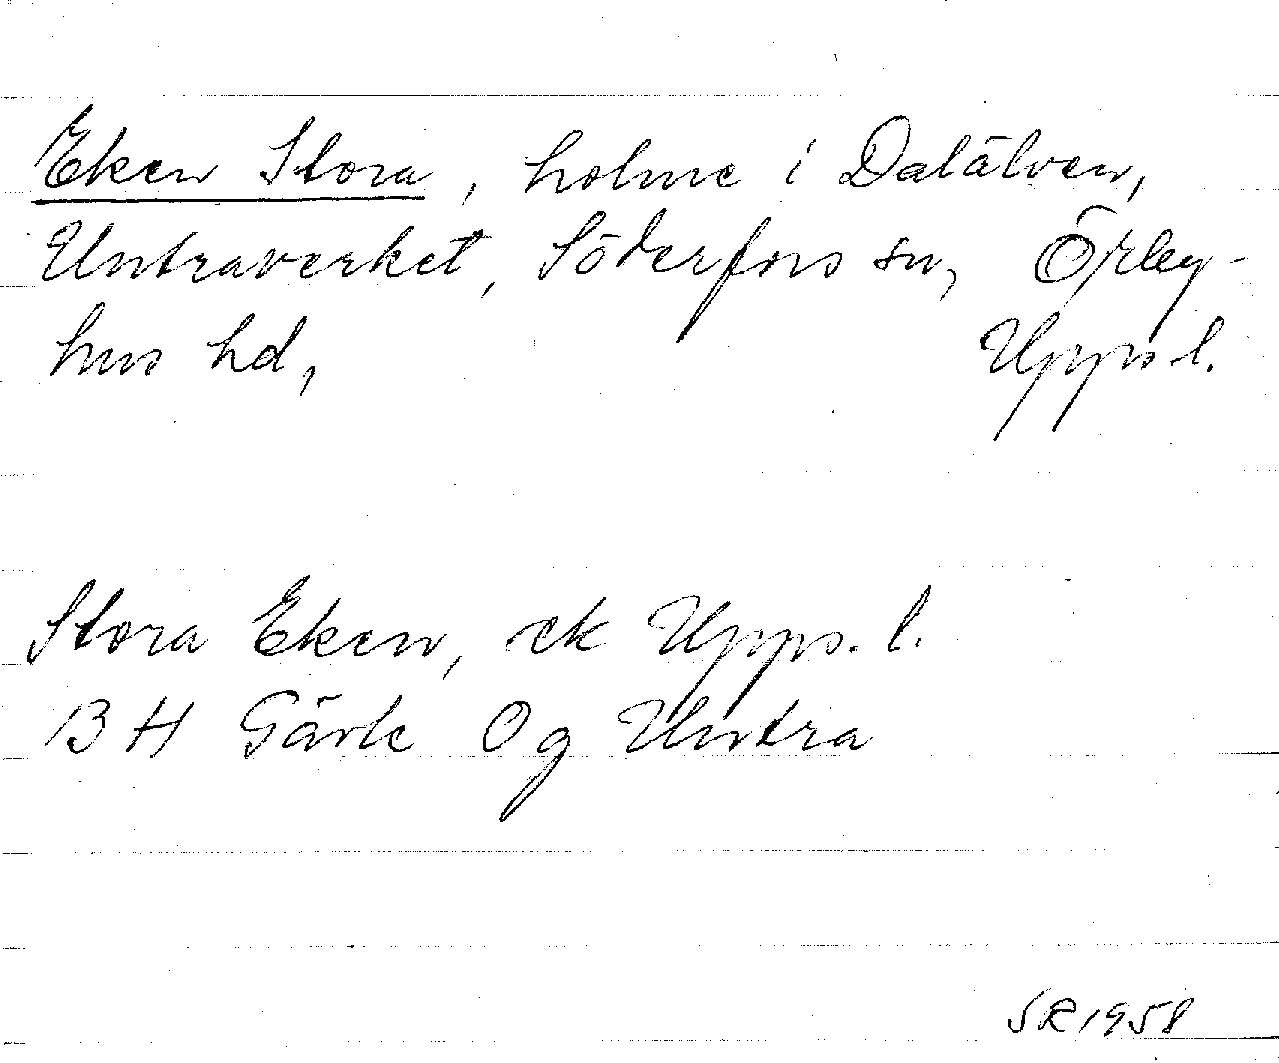 Eken Stora, holme i Dalälven,
Untraverket, Söderfors sn, Örby-
hus hd, Upps l.
Stora Eken, ek Upps. l.
B H Gävle Og Untra
SR 1958